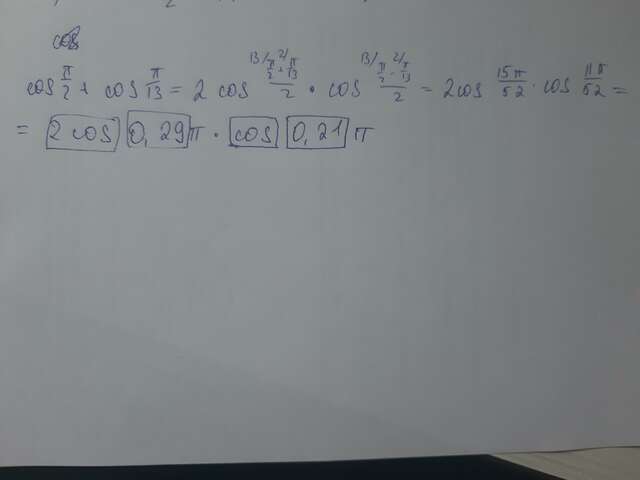 cos
cos π/2 + cos π/13 = 2 cos (13/ π/2 + 2/ π/13)/2 · cos (13/ π/2 - 2/ π/13)/2 = 2cos 15π/52 · cos 11π/52 =
= 2 cos 0,29π · cos 0,21 π